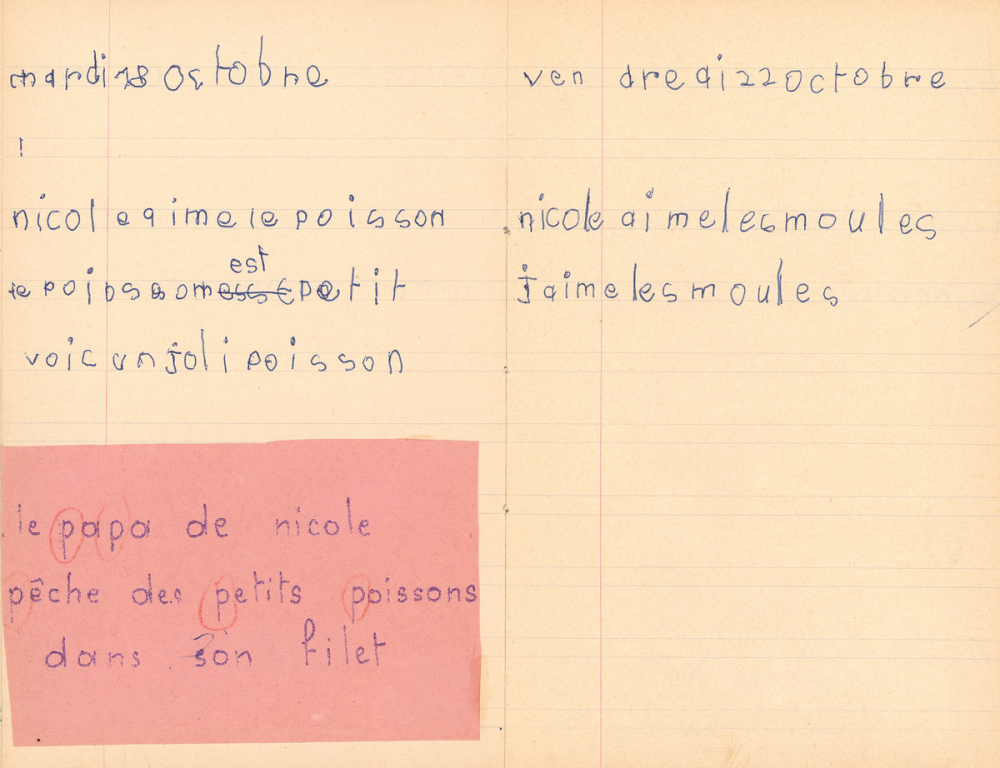 mardi 18 octobre
!
nicole aime le poisson
est
le poisson petit
voic un joli poisson
le papa de nicole
pêche des petits poissons
dans son filet
ven dredi 22 octobre
nicole aime les moules
j'aime les moules